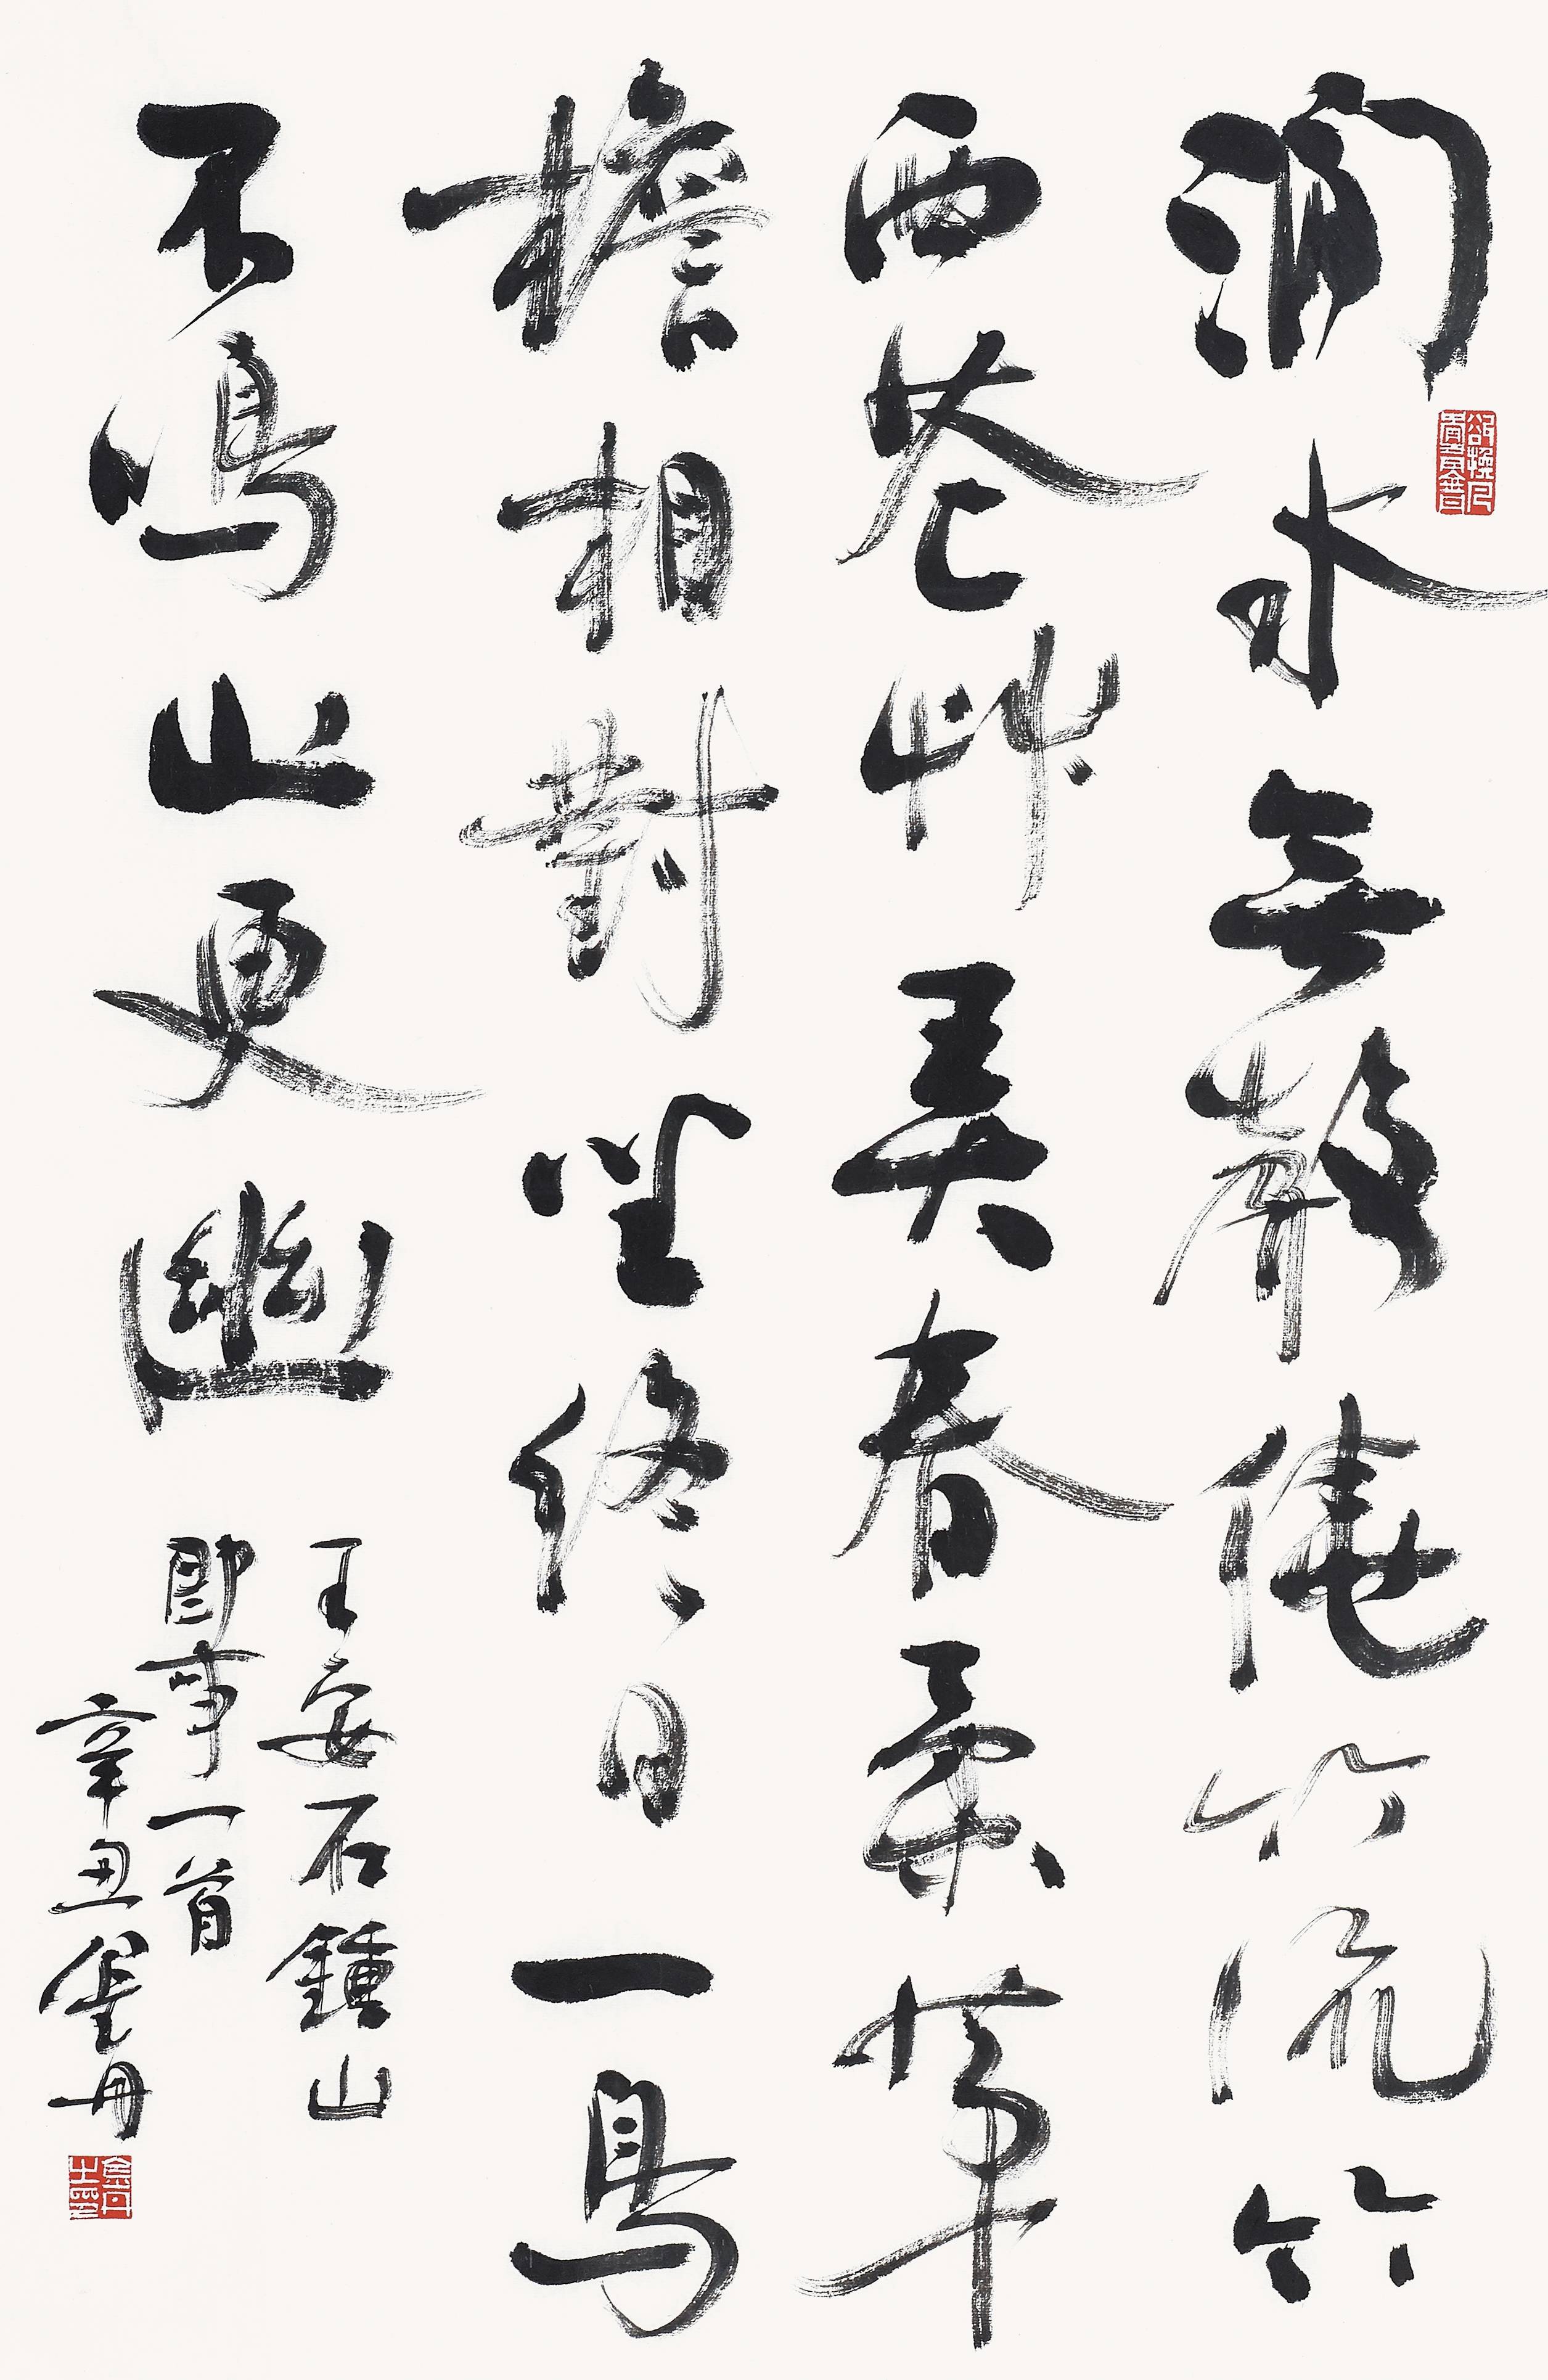 澗水無聲繞竹流竹
西花艸弄春柔茅
檐相對坐終日一鳥
不鳴山更幽
王安石鍾山
即事一首
辛丑金丹